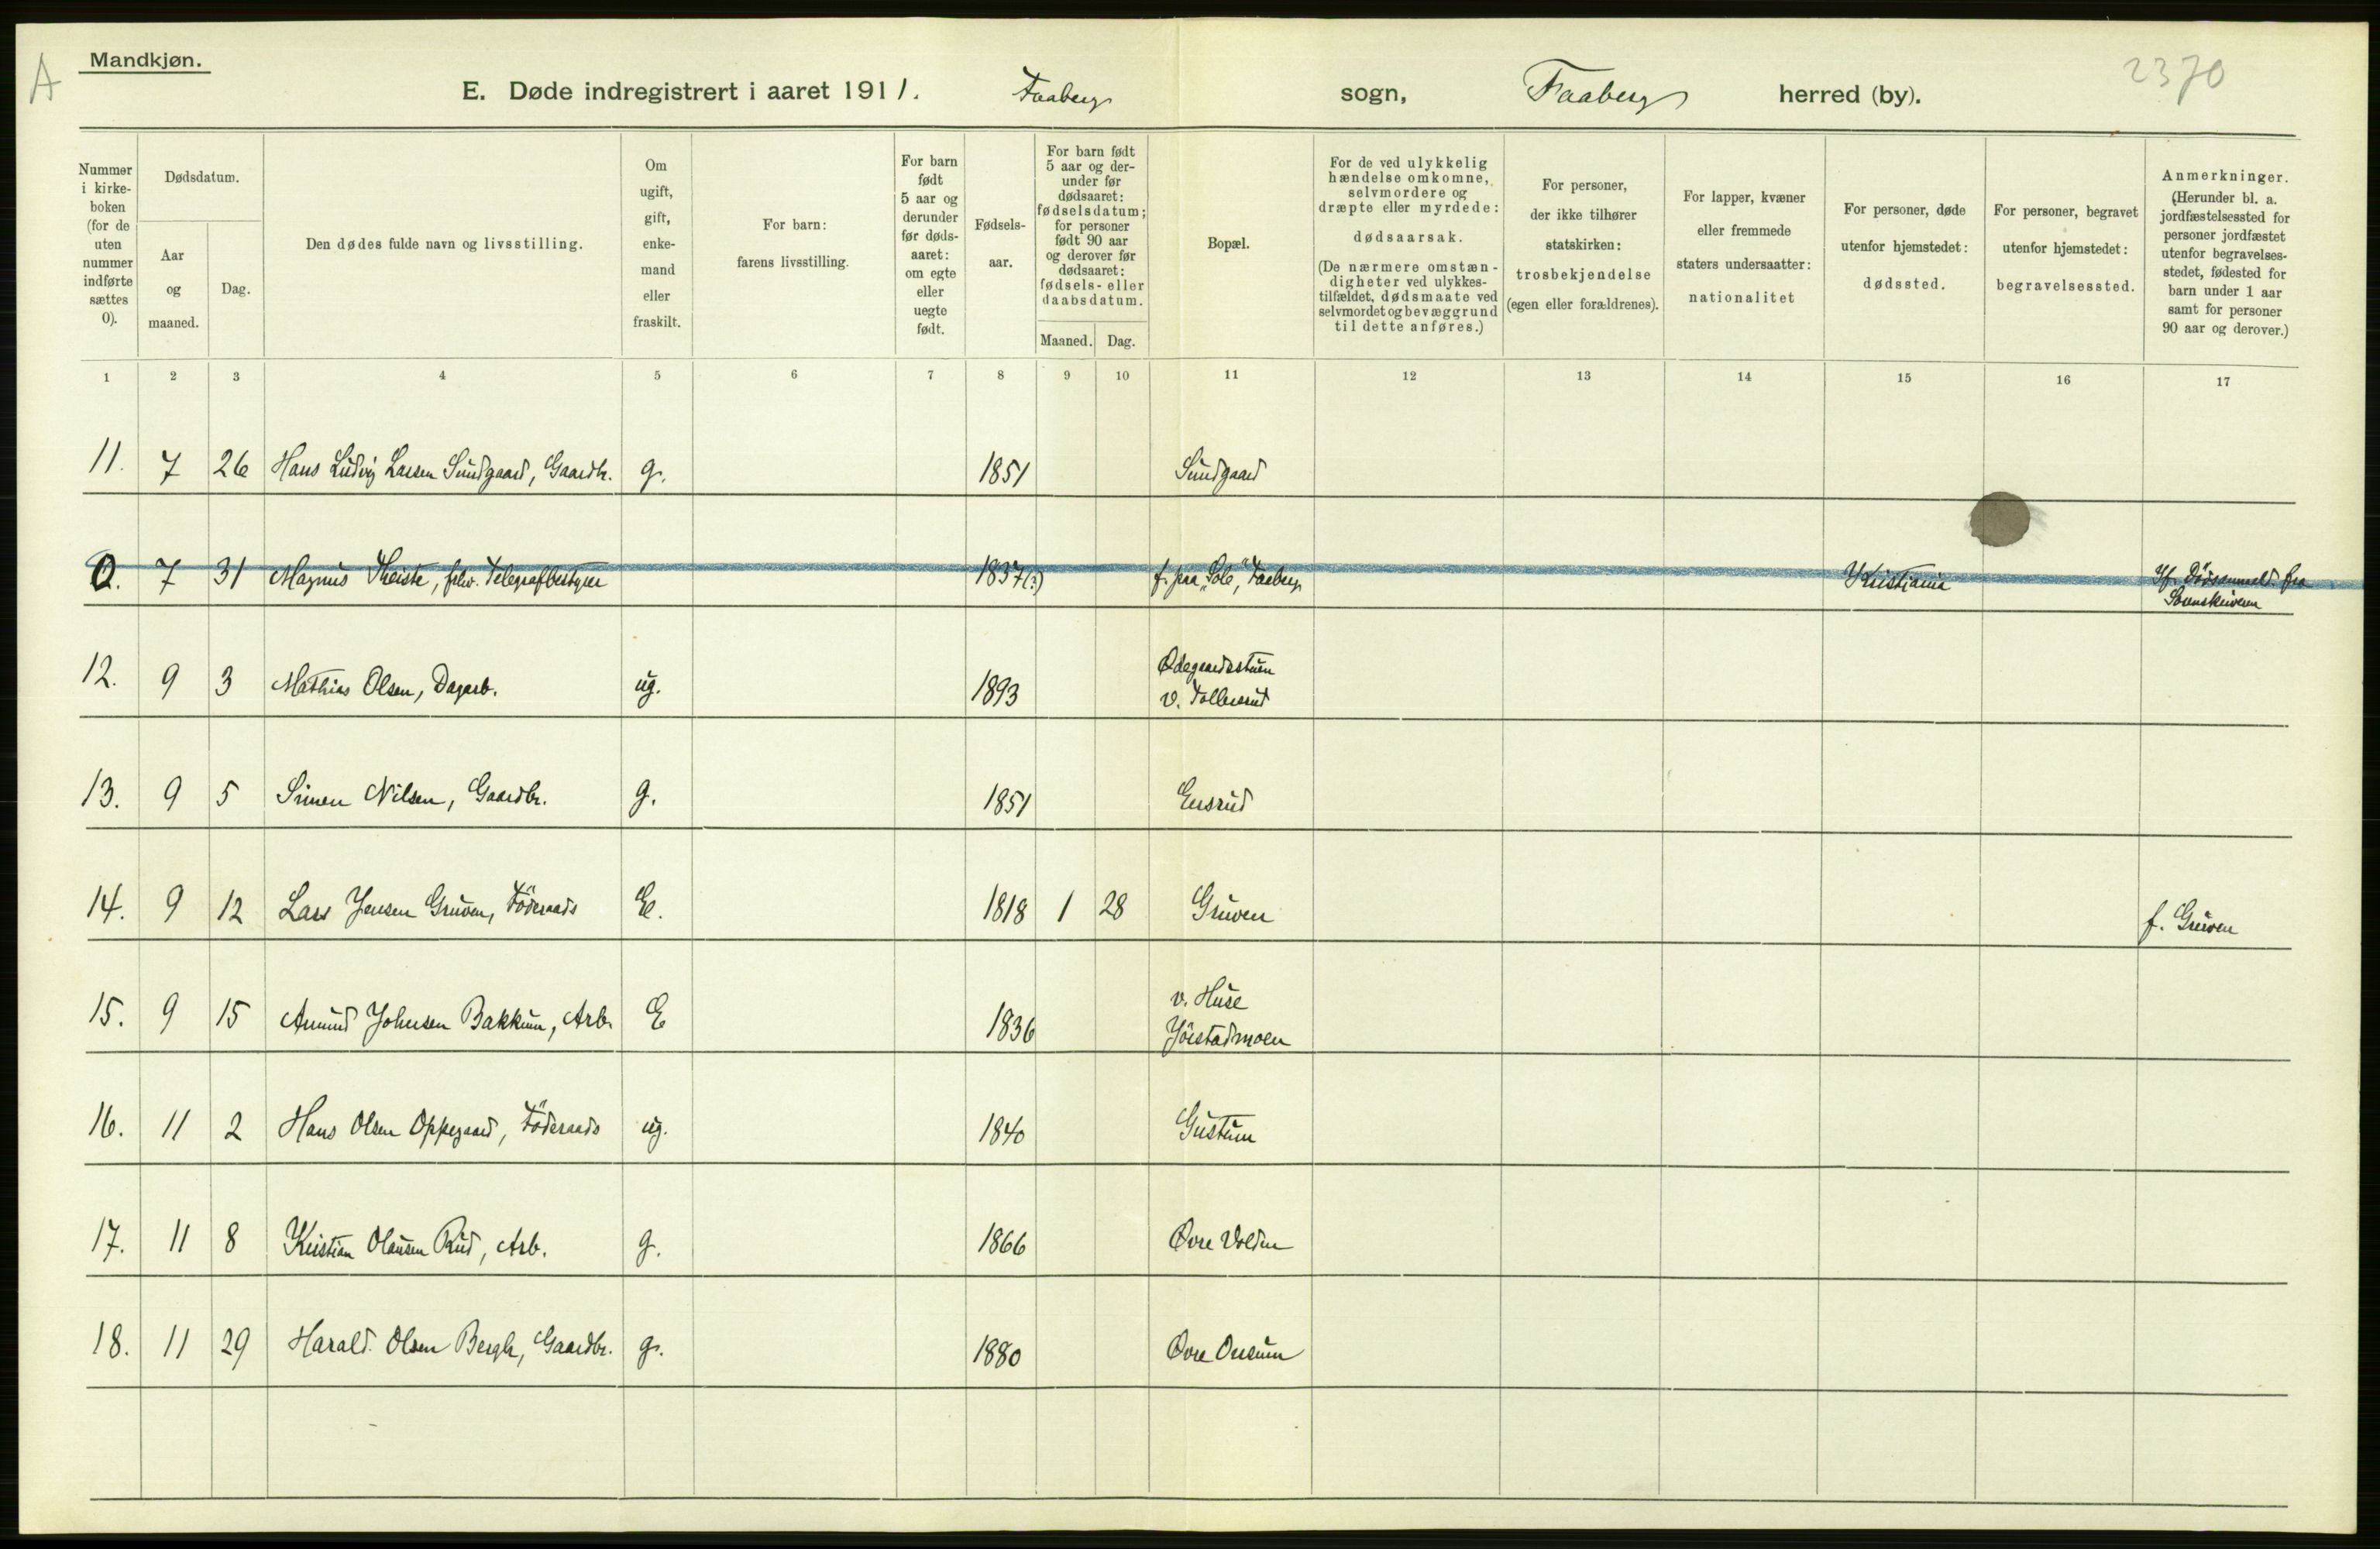 A
Mandkjøn.
2370
E. Døde indregistrert i aaret 1911. Faaberg sogn, Faaberg herred (by).
Nummer i kirke-boken (for de uten nummer indførte sættes 0).
Dødsdatum.
Aar og maaned.
Dag.
Den dødes fulde navn og livsstilling.
Om ugift, gift, enke-mand eller fraskilt.
For barn: farens livsstilling.
For barn født 5 aar og derunder før døds-aaret: om egte eller uegte født.
Fødsels-aar.
For barn født 5 aar og der-under før dødsaaret: fødselsdatum; for personer født 90 aar og derover før dødsaaret: fødsels- eller daabsdatum.
Maaned. Dag.
Bopæl.
For de ved ulykkelig hændelse omkomne, selvmordere og dræpte eller myrdede: dødsaarsak. (De nærmere omstæn-digheter ved ulykkes-tilfældet, dødsmaate ved selvmordet og bevæggrund til dette anføres.)
For personer, der ikke tilhører statskirken: trosbekjendelse (egen eller forældrenes).
For lapper, kvæner eller fremmede staters undersaatter: nationalitet
For personer, døde utenfor hjemstedet: dødssted.
For personer, begravet utenfor hjemstedet: begravelsessted.
Anmerkninger. (Herunder bl. a. jordfæstelsessted for personer jordfæstet utenfor begravelses-stedet, fødested for barn under 1 aar samt for personer 90 aar og derover.)
1 2 3 4 5 6 7 8 9 10 11 12 13 14 15 16 17
11. 7 26 Hans Ludvig Larsen Sundgaard, Gaardbr. g. 1851 Sundgaard
0. 7 31 Magnus Theiste, Telegrafbestyrer 1837(?) f. paa "Sole," Faaberg Kristiania Jf. Dødsanmeld. fra
Sorenskriveren
12. 9 3 Mathias Olsen, Dagarb. ug. 1893 Ødegaardsstuen
v. Tollersrud
13. 9 5 Simen Nilsen, Gaardbr. g. 1851 Ensrud
14. 9 12 Lars Jensen Gruven, Föderaads E. 1818 1 28 Gruven f. Gruven
15. 9 15 Amund Johnsen Bakkum, Arb. E 1836 v. Huse
Jörstadmoen
16. 11 2 Hans Olsen Oppegaard, Föderaads ug. 1840 Gustum
17. 11 8 Kristian Olausen Rud, Arb. g. 1866 Øvre Volden
18. 11 29 Harald Olsen Bergh, Gaardbr. g. 1880 Øvre Onsum